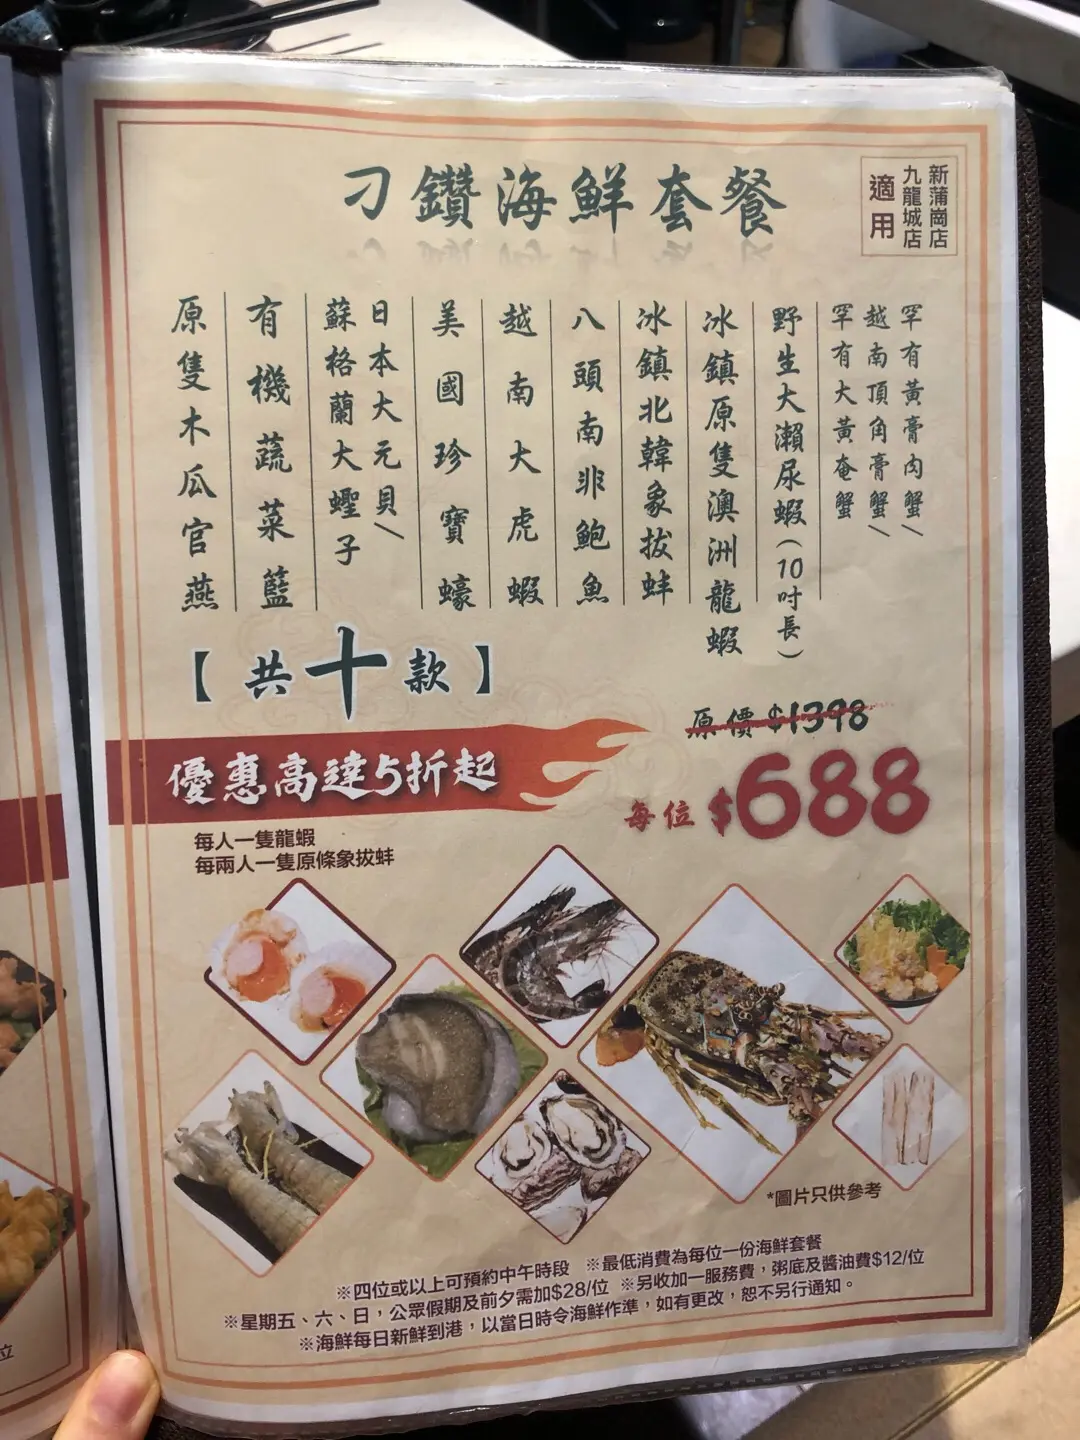 刁鑽海鮮套餐
新蒲崗店
九龍城店
適用
罕有黃膏肉蟹/
越南頂角膏蟹/
罕有大黃奄蟹
野生大瀨尿蝦(10吋長)
冰鎮原隻澳洲龍蝦
冰鎮北韓象拔蚌
八頭南非鮑魚
越南大虎蝦
美國珍寶蠔
日本大元貝/
蘇格蘭大蟶子
有機蔬菜籃
原隻木瓜官燕
【共十款】
原價$1398
優惠高達5折起
每位$688
每人一隻龍蝦
每兩人一隻原條象拔蚌
*圖片只供參考
※四位或以上可預約中午時段 ※最低消費為每位一份海鮮套餐
※星期五、六、日,公眾假期及前夕需加$28/位 ※另收加一服務費,粥底及醬油費$12/位
※海鮮每日新鮮到港,以當日時令海鮮作準,如有更改,恕不另行通知。
位